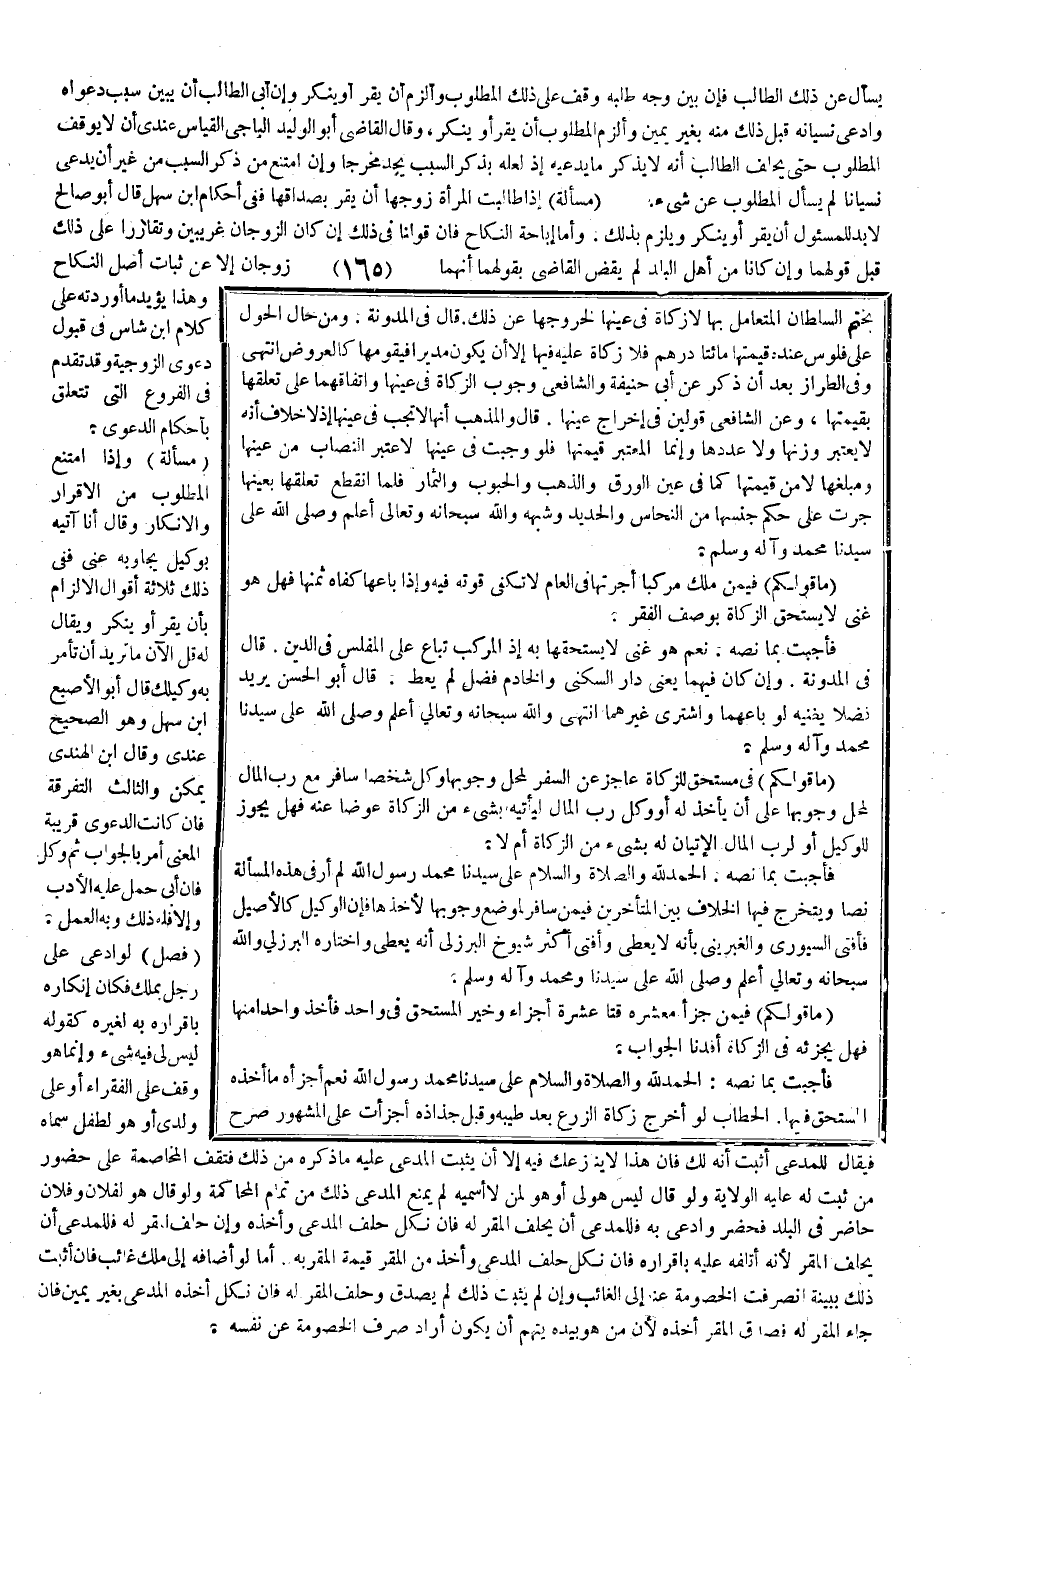 يسأل عن ذلك الطالب فإن بين وجه طلبه وقف على ذلك المطلوب وألزم أن يقر أو ينكر وإن أبى الطالب أن يبين سبب دعواه
وادعى نسيانه قبل ذلك منه بغير يمين وألزم المطلوب أن يقر أو ينكر ، وقال القاضى أبو الوليد الباجى القياس عندى أن لا يوقف
المطلوب حتى يحلف الطالب أنه لا يذكر ما يدعيه إذ لعله بذكر السبب يجد مخرجا وإن امتنع من ذكر السبب من غير أن يدعى
نسيانا لم يسأل المطلوب عن شىء . (مسألة) إذا طالبت المرأة زوجها أن يقر بصداقها ففى أحكام ابن سهل قال أبو صالح
لا بد للمسئول أن يقر أو ينكر ويلزم بذلك . وأما إباحة النكاح فان قولنا فى ذلك إن كان الزوجان غريبين وتقاررا على ذلك
قبل قولهما وإن كانا من أهل البلد لم يقض القاضى بقولهما أنهما (١٦٥) زوجان إلا عن ثبات أصل النكاح
وهذا يؤيد ما أوردته على
كلام ابن شاس فى قبول
دعوى الزوجية وقد تقدم
فى الفروع التى تتعلق
بأحكام الدعوى :
(مسألة) وإذا امتنع
المطلوب من الاقرار
والانكار وقال أنا آتيه
بوكيل يجاوبه عنى ففى
ذلك ثلاثة أقوال الالزام
بأن يقر أو ينكر ويقال
له قل الآن ما تريد أن تأمر
به وكيلك قال أبو الأصبع
ابن سهل وهو الصحيح
عندى وقال ابن الهندى
يمكن والثالث التفرقة
فان كانت الدعوى قريبة
المعنى أمر بالجواب ثم وكل
فان أبى حمل عليه الأدب
وإلا فله ذلك وبه العمل :
(فصل) لو ادعى على
رجل بملك فكان إنكاره
باقراره به لغيره كقوله
ليس لى فيه شىء وإنما هو
وقف على الفقراء أو على
ولدى أو هو لطفل سماه
بختم السلطان المتعامل بها لا زكاة فى عينها لخروجها عن ذلك . قال فى المدونة . ومن حال الحول
على فلوس عنده قيمتها مائتا درهم فلا زكاة عليه فيها إلا أن يكون مديرا فيقومها كالعروض انتهى
وفى الطراز بعد أن ذكر عن أبى حنيفة والشافعى وجوب الزكاة فى عينها واتفاقهما على تعلقها
بقيمتها ، وعن الشافعى قولين فى إخراج عينها . قال والمذهب أنها لا تجب فى عينها إذ لا خلاف أنه
لا يعتبر وزنها ولا عددها وإنما المعتبر قيمتها فلو وجبت فى عينها لاعتبر النصاب من عينها
ومبلغها لا من قيمتها كما فى عين الورق والذهب والحبوب والثمار فلما انقطع تعلقها بعينها
جرت على حكم جنسها من النحاس والحديد وشبهه والله سبحانه وتعالى أعلم وصلى الله على
سيدنا محمد وآله وسلم :
(ما قولكم) فيمن ملك مركبا أجرتها فى العام لا تكفى قوته فيه وإذا باعها كفاه ثمنها فهل هو
غنى لا يستحق الزكاة بوصف الفقر :
فأجبت بما نصه : نعم هو غنى لا يستحقها به إذ المركب تباع على المفلس فى الدين . قال
فى المدونة . وإن كان فيهما يعنى دار السكنى والخادم فضل لم يعط . قال أبو الحسن يريد
فضلا يغنيه لو باعهما واشترى غيرهما انتهى والله سبحانه وتعالى أعلم وصلى الله على سيدنا
محمد وآله وسلم :
(ما قولكم) فى مستحق للزكاة عاجز عن السفر لمحل وجوبها وكل شخصا سافر مع رب المال
لمحل وجوبها على أن يأخذ له أو وكل رب المال ليأتيه بشىء من الزكاة عوضا عنه فهل يجوز
للوكيل أو لرب المال الإتيان له بشىء من الزكاة أم لا :
فأجبت بما نصه : الحمد لله والصلاة والسلام على سيدنا محمد رسول الله لم أر فى هذه المسألة
نصا ويتخرج فيها الخلاف بين المتأخرين فيمن سافر لموضع وجوبها لأخذها فإن الوكيل كالأصيل
فأفتى السيورى والغبرينى بأنه لا يعطى وأفتى أكثر شيوخ البرزلى أنه يعطى واختاره البرزلى والله
سبحانه وتعالى أعلم وصلى الله على سيدنا ومحمد وآله وسلم :
(ما قولكم) فيمن جزأ معشره قتا عشرة أجزاء وخير المستحق فى واحد فأخذ واحدا منها
فهل يجزئه فى الزكاة أفدنا الجواب :
فأجبت بما نصه : الحمد لله والصلاة والسلام على سيدنا محمد رسول الله نعم أجزأه ما أخذه
المستحق فيها . الحطاب لو أخرج زكاة الزرع بعد طيبه وقبل جذاذه أجزأت على المشهور صرح
فيقال للمدعى أثبت أنه لك فان هذا لا ينازعك فيه إلا أن يثبت المدعى عليه ما ذكره من ذلك فتقف المخاصمة على حضور
من ثبت له عليه الولاية ولو قال ليس هو لى أو هو لمن لا أسميه لم يمنع المدعى ذلك من تمام المحاكمة ولو قال هو لفلان وفلان
حاضر فى البلد فحضر وادعى به فللمدعى أن يحلف المقر له فان نكل حلف المدعى وأخذه وإن حلف المقر له فللمدعى أن
يحلف المقر لأنه أتلفه عليه باقراره فان نكل حلف المدعى وأخذ من المقر قيمة المقر به . أما لو أضافه إلى ملك غائب فان أثبت
ذلك ببينة انصرفت الخصومة عنه إلى الغائب وإن لم يثبت ذلك لم يصدق وحلف المقر له فان نكل أخذه المدعى بغير يمين فان
جاء المقر له فصدق المقر أخذه لأن من هو بيده يتهم أن يكون أراد صرف الخصومة عن نفسه :